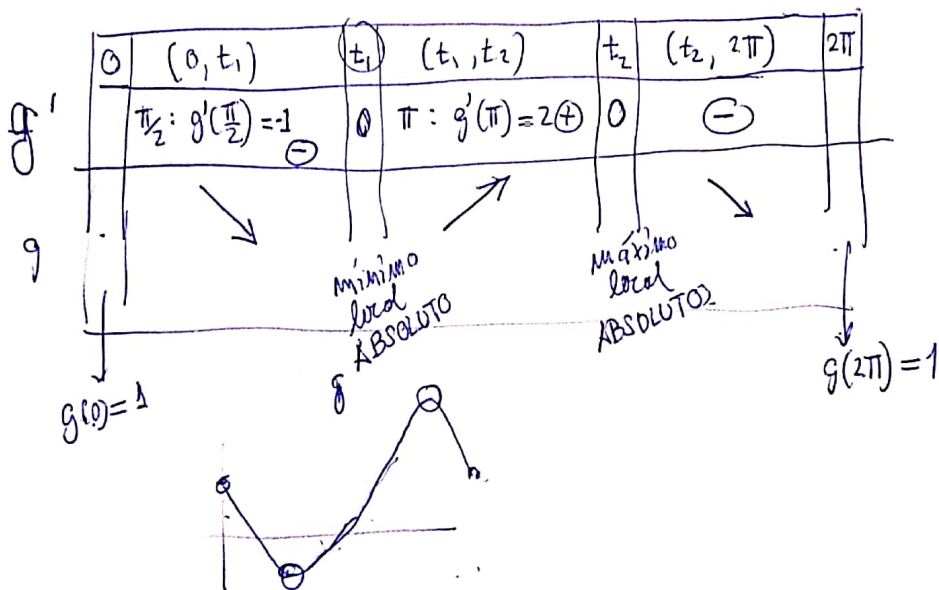 0 (0, t₁) t₁ (t₁, t₂) t₂ (t₂, 2π) 2π
g' π/2 : g'(π/2) = -1 ⊖ 0 π : g'(π) = 2 ⊕ 0 ⊖
g
mínimo
local
ABSOLUTO
máximo
local
ABSOLUTO
g(0) = 1
g(2π) = 1
g